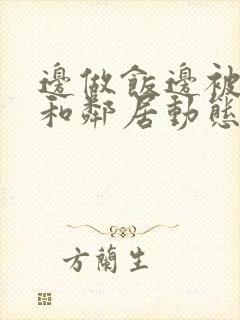 邊做飯邊被
和鄰居動態
方蘭生